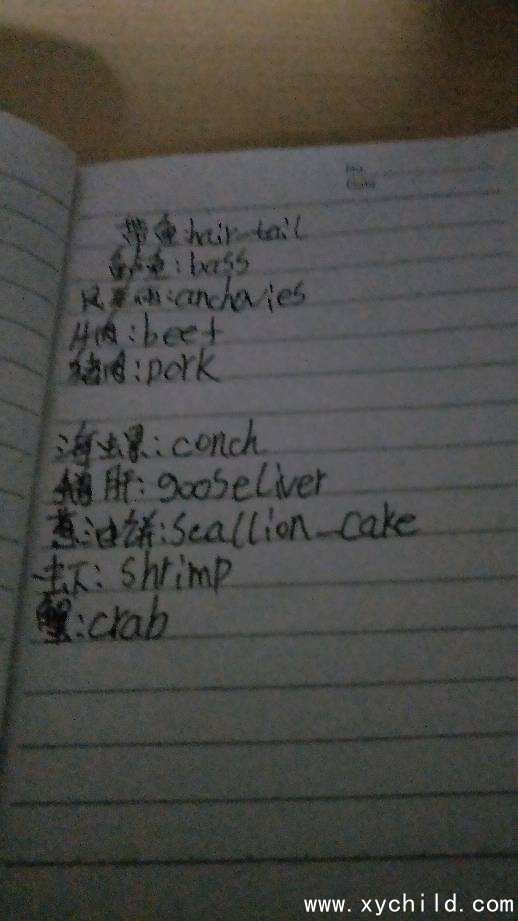 带鱼:hair-tail
鲈鱼:bass
凤尾鱼:anchovies
牛肉:beef
猪肉:pork
海螺:conch
鹅肝:gooseliver
葱油饼:scallion-cake
虾:shrimp
蟹:crab
www.xychild.com